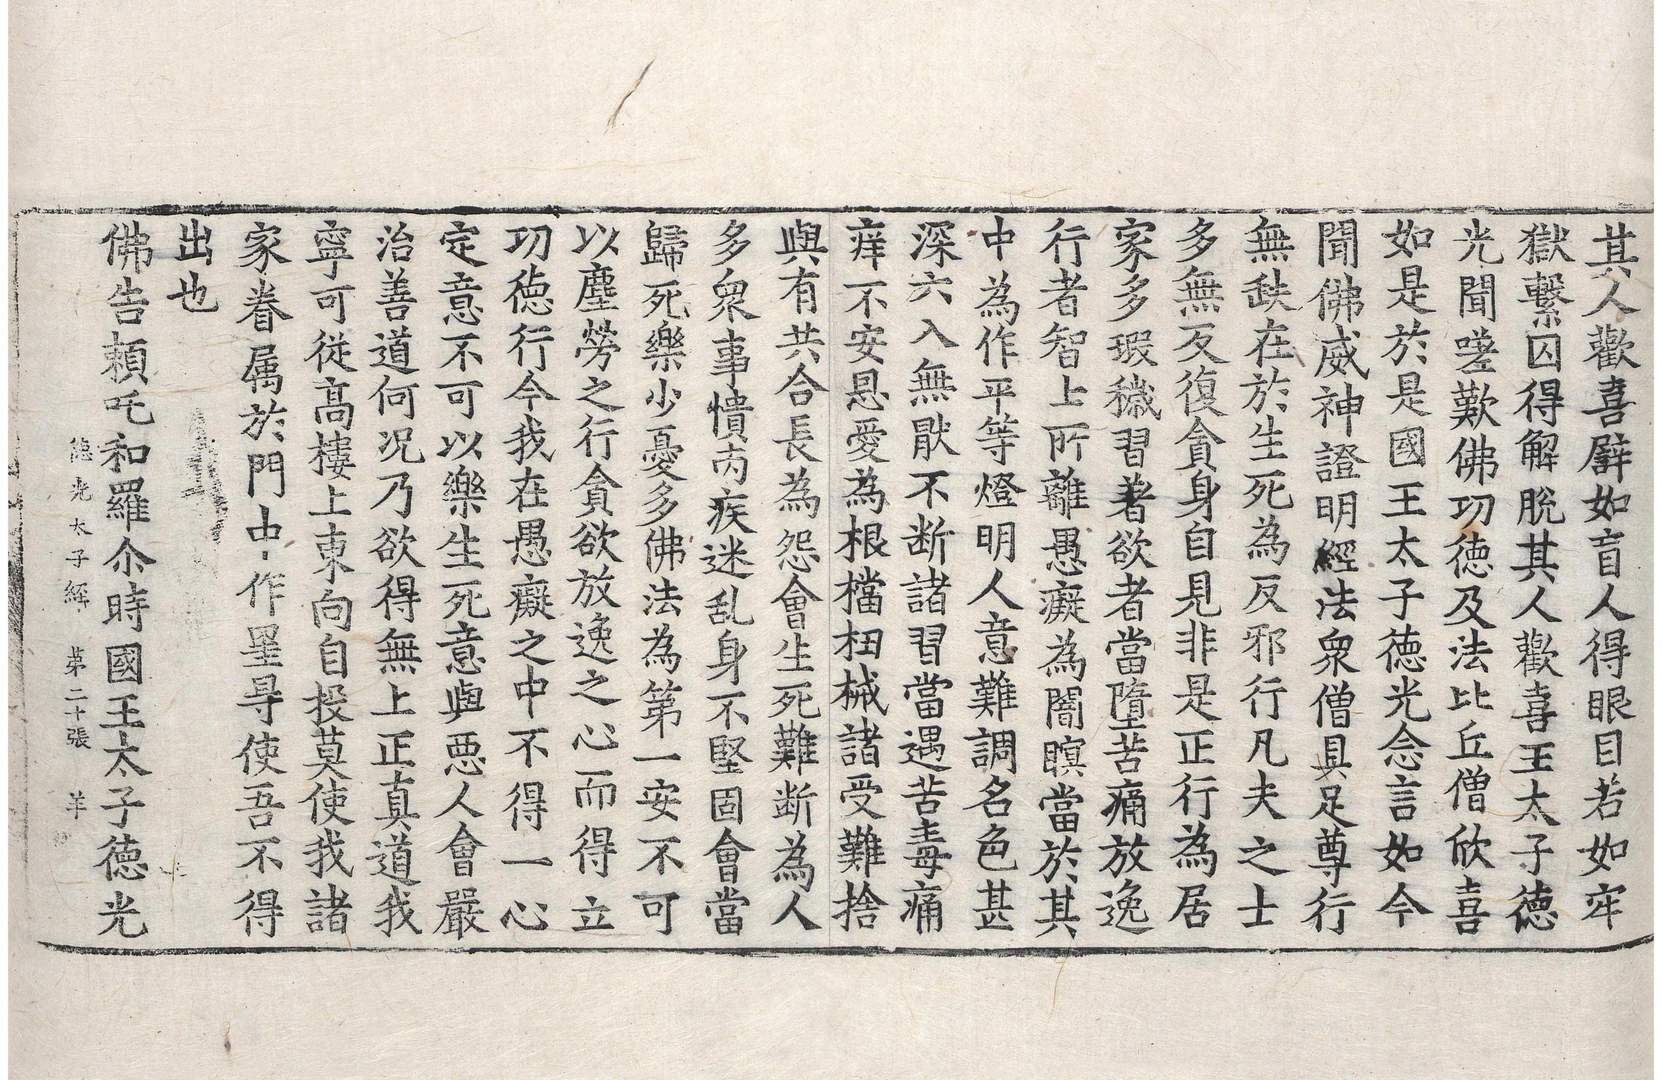 其人歡喜譬如盲人得眼目若如牢
獄繫囚得解脫其人歡喜王太子德
光聞嗟歎佛功德及法比丘僧欣喜
如是於是國王太子德光念言如今
聞佛威神證明經法衆僧具足尊行
無缺在於生死為反邪行凡夫之士
多無反復貪身自見非是正行為居
家多瑕穢習著欲者當墮苦痛放逸
行者智上所離愚癡為闇瞑當於其
中為作平等燈明人意難調名色甚
深六入無猒不断諸習當遇苦毒痛
痒不安恩愛為根檔杻械諸受難捨
與有共合長為怨會生死難断為人
多衆事憒丙疾迷乱身不堅固會當
歸死樂少憂多佛法為第一安不可
以塵勞之行貪欲放逸之心而得立
功德行今我在愚癡之中不得一心
定意不可以樂生死意與惡人會嚴
治善道何況乃欲得無上正真道我
寧可從髙樓上東向自投莫使我諸
家眷属於門中作罣㝵使吾不得
出也
佛告頼吒和羅尒時國王太子德光
德光太子經 第二十張 羊